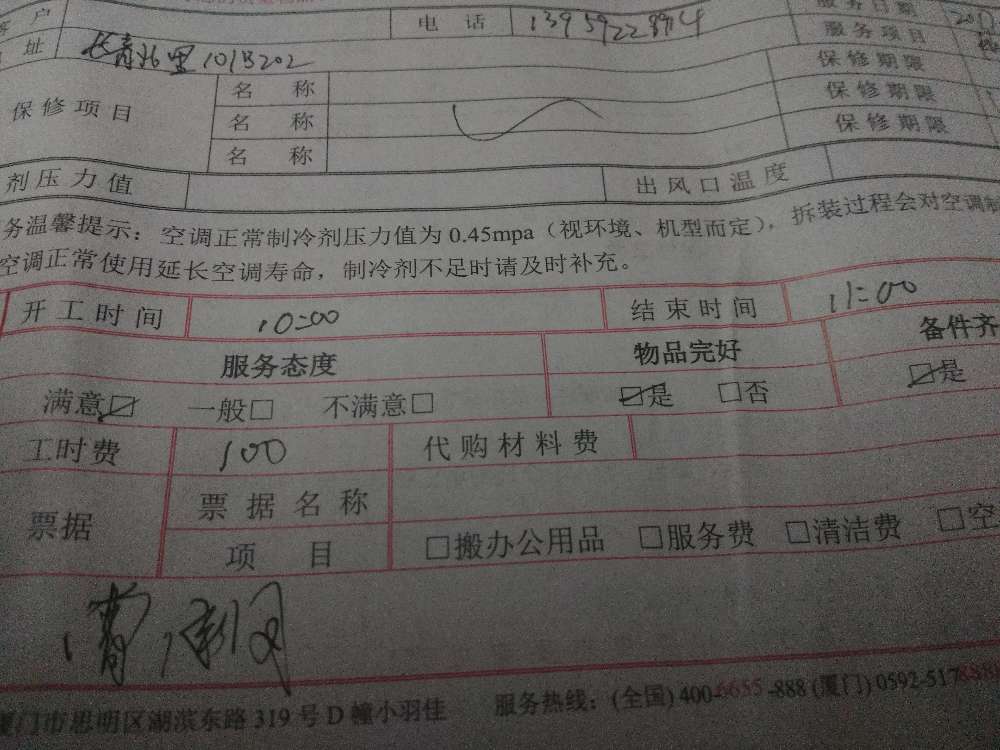 客户 电话 服务日期
址 长青北里101B202 服务项目
保修项目 名称 保修期限
名称 保修期限
名称 保修期限
剂压力值 出风口温度
务温馨提示：空调正常制冷剂压力值为0.45mpa（视环境、机型而定），拆装过程会对空调制
空调正常使用延长空调寿命，制冷剂不足时请及时补充。
开工时间 10:00 结束时间 11:00
服务态度 物品完好 备件齐
满意☑ 一般□ 不满意□ ☑是 □否 ☑是
工时费 100 代购材料费
票据 票据名称
项目 □搬办公用品 □服务费 □清洁费 □空
厦门市思明区湖滨东路319号D幢小羽佳 服务热线：(全国)400-6655-888(厦门)0592-517888